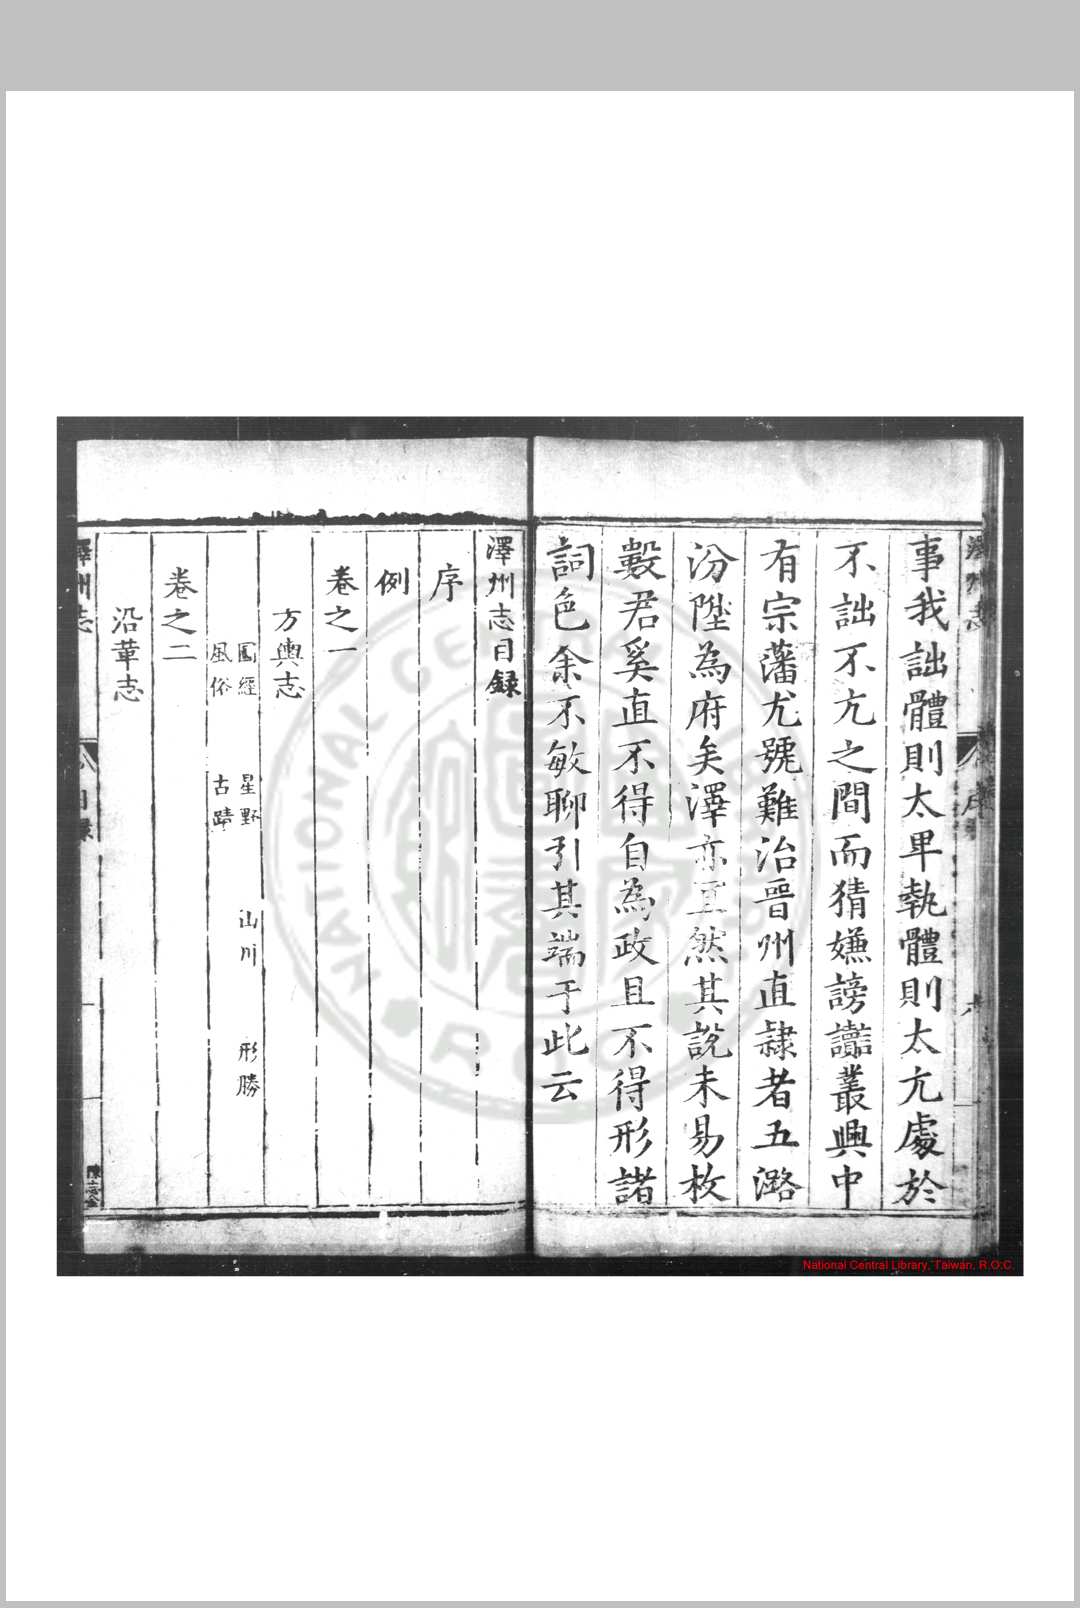 事我詘體則太卑執體則太亢處於
不詘不亢之間而猜嫌謗讟叢興中
有宗藩尤號難治晉州直隸者五潞
汾陞為府矣澤亦宜然其說未易枚
數君奚直不得自為政且不得形諸
詞色余不敏聊引其端于此云
澤州志目録
序
例
卷之一
方輿志
圖經 星野 山川 形勝
風俗 古蹟
卷之二
沿革志
澤州志
目録
NATIONAL CENTRAL LIBRARY
R.O.C.
National Central Library, Taiwan, R.O.C.